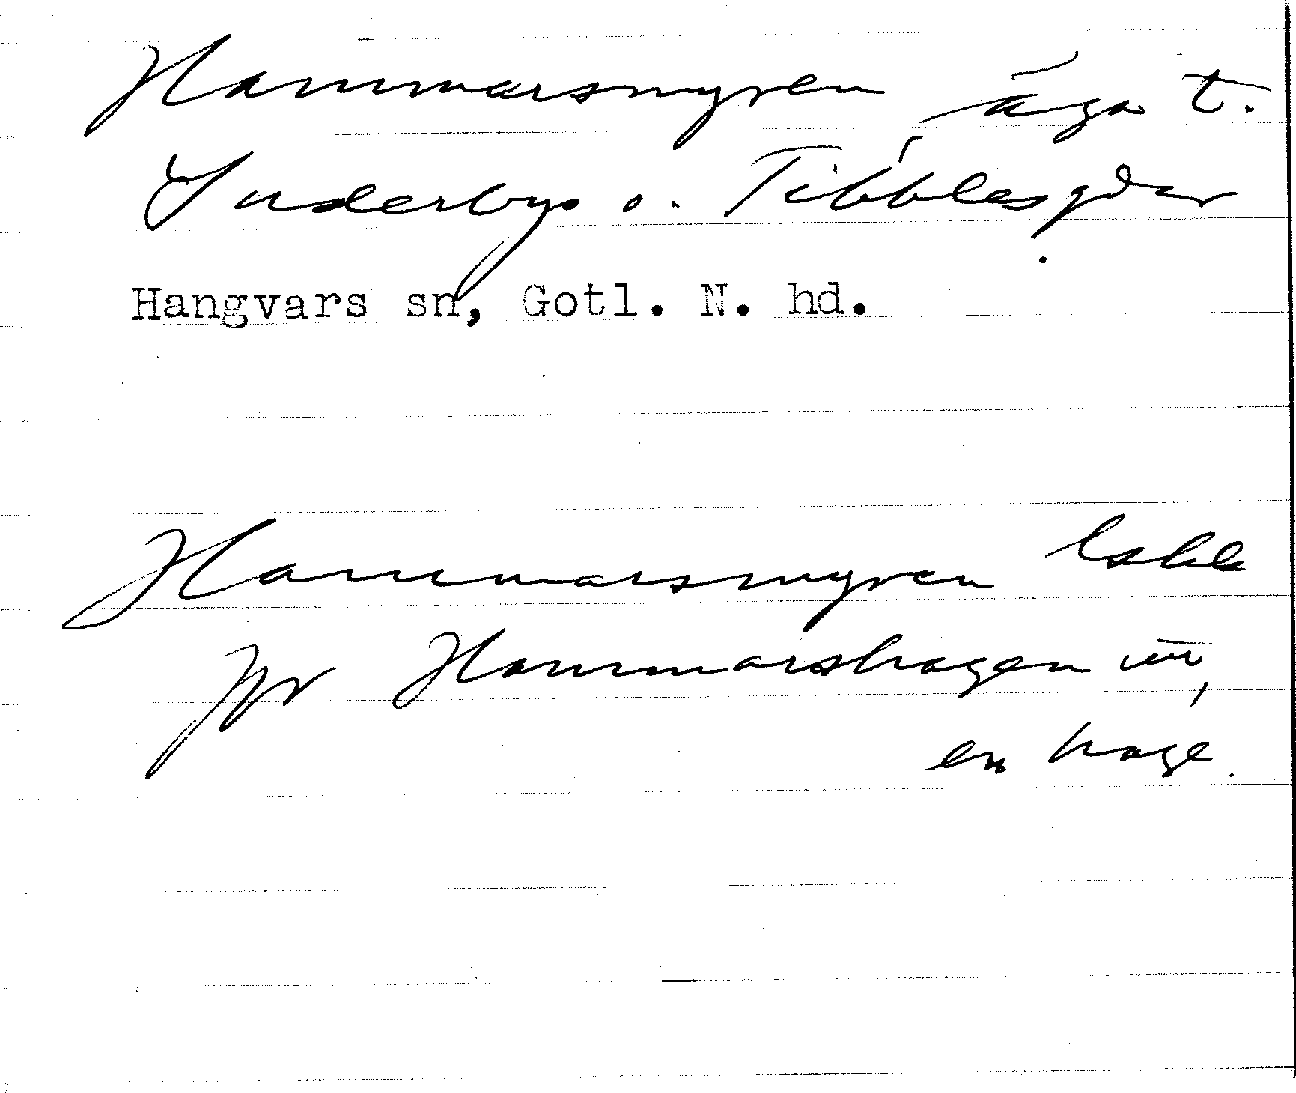 Hammarsmyren äga t.
Suderbys o. Tibblesgdar
Hangvars sn, Gotl. N. hd.
Hammarsmyren
Jfr Hammarshagen
en hage.